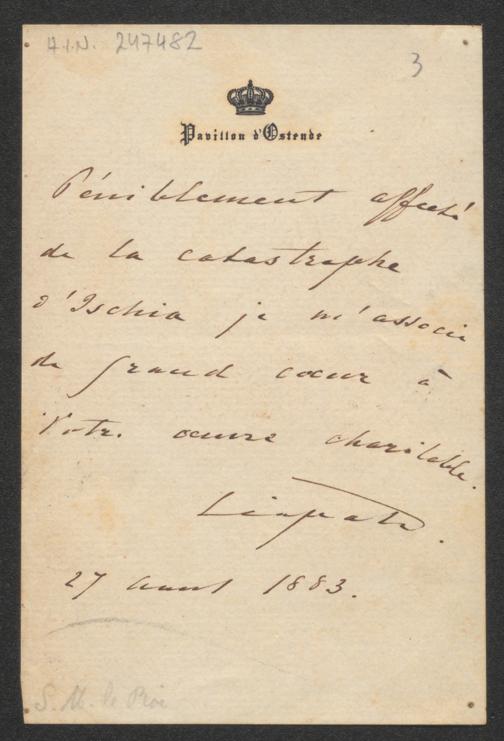 A.I.N. 247482
3
Pavillon d'Ostende
Péniblement affecté
de la catastrophe
d'Ischia je m'associe
de grand cœur à
Votre œuvre charitable.
Léopold.
27 aout 1883.
S. M. le Roi